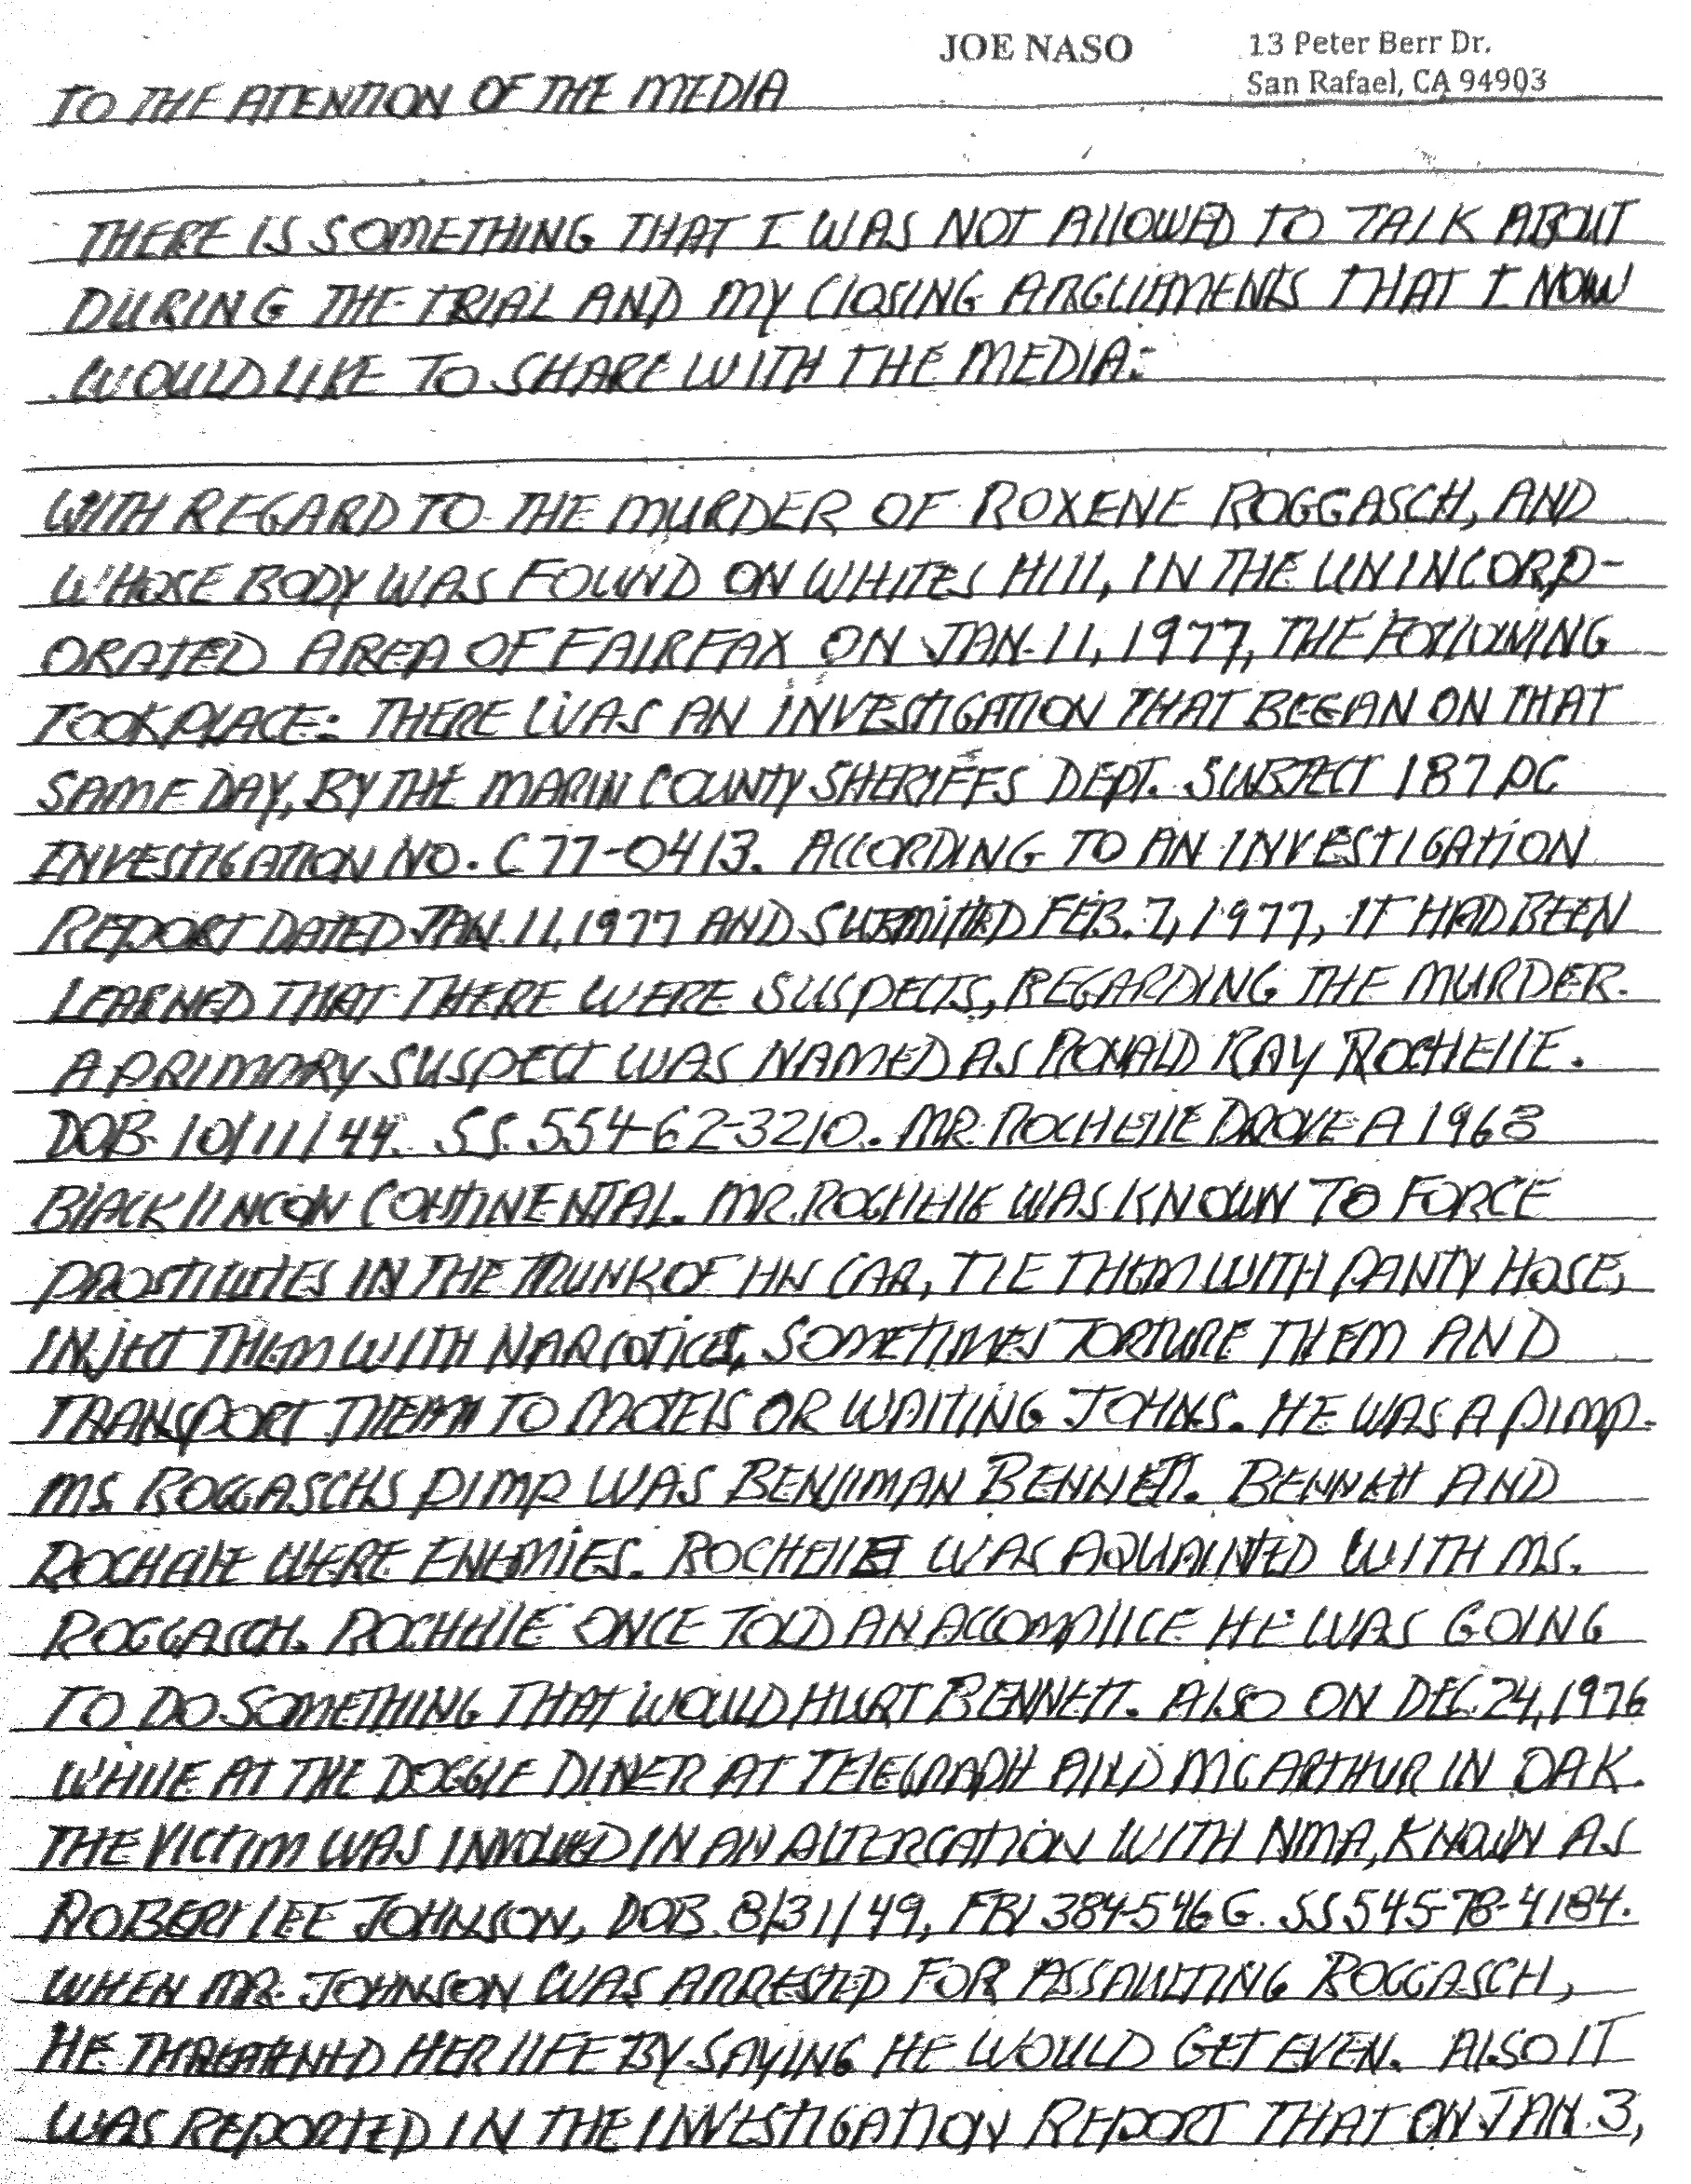 JOE NASO 13 Peter Berr Dr.
San Rafael, CA 94903
TO THE ATENTION OF THE MEDIA
THERE IS SOMETHING THAT I WAS NOT ALLOWED TO TALK ABOUT
DURING THE TRIAL AND MY CLOSING ARGUEMENTS THAT I NOW
WOULD LIKE TO SHARE WITH THE MEDIA:
WITH REGARD TO THE MURDER OF ROXENE ROGGASCH, AND
WHOSE BODY WAS FOUND ON WHITES HILL, IN THE UNINCORP-
ORATED AREA OF FAIRFAX ON JAN. 11, 1977, THE FOLLOWING
TOOK PLACE: THERE WAS AN INVESTIGATION THAT BEGAN ON THAT
SAME DAY, BY THE MARIN COUNTY SHERIFFS DEPT. SUBJECT 187 PC
INVESTIGATION NO. C 77-0413. ACCORDING TO AN INVESTIGATION
REPORT DATED JAN. 11, 1977 AND SUBMITTED FEB. 7, 1977, IT HAD BEEN
LEARNED THAT THERE WERE SUSPECTS, REGARDING THE MURDER.
A PRIMARY SUSPECT WAS NAMED AS RONALD RAY ROCHELLE.
DOB. 10/11/44. S.S. 554-62-3210. MR. ROCHELLE DROVE A 1968
BLACK LINCOLN CONTINENTAL. MR. ROCHELLE WAS KNOWN TO FORCE
PROSTITUTES IN THE TRUNK OF HIS CAR, TIE THEM WITH PANTY HOSE,
INJECT THEM WITH NARCOTICS, SOMETIMES TORTURE THEM AND
TRANSPORT THEM TO MOTELS OR WAITING JOHNS. HE WAS A PIMP.
MS. ROGGASCHS PIMP WAS BENJIMAN BENNETT. BENNETT AND
ROCHELLE WERE ENEMIES. ROCHELLE WAS AQUAINTED WITH MS.
ROGGASCH. ROCHELLE ONCE TOLD AN ACCOMPLICE HE WAS GOING
TO DO SOMETHING THAT WOULD HURT BENNETT. ALSO ON DEC. 24, 1976
WHILE AT THE DOGGIE DINER AT TELEGRAPH AND MCARTHUR IN OAK.
THE VICTIM WAS INVOLVED IN AN ALTERCATION WITH NMA, KNOWN AS
ROBERT LEE JOHNSON, DOB. 8/31/49, FBI 384-546 G. SS 545-78-4184.
WHEN MR. JOHNSON WAS ARRESTED FOR ASSAULTING ROGGASCH,
HE THREATENED HER LIFE BY SAYING HE WOULD GET EVEN. ALSO IT
WAS REPORTED IN THE INVESTIGATION REPORT THAT ON JAN. 3,